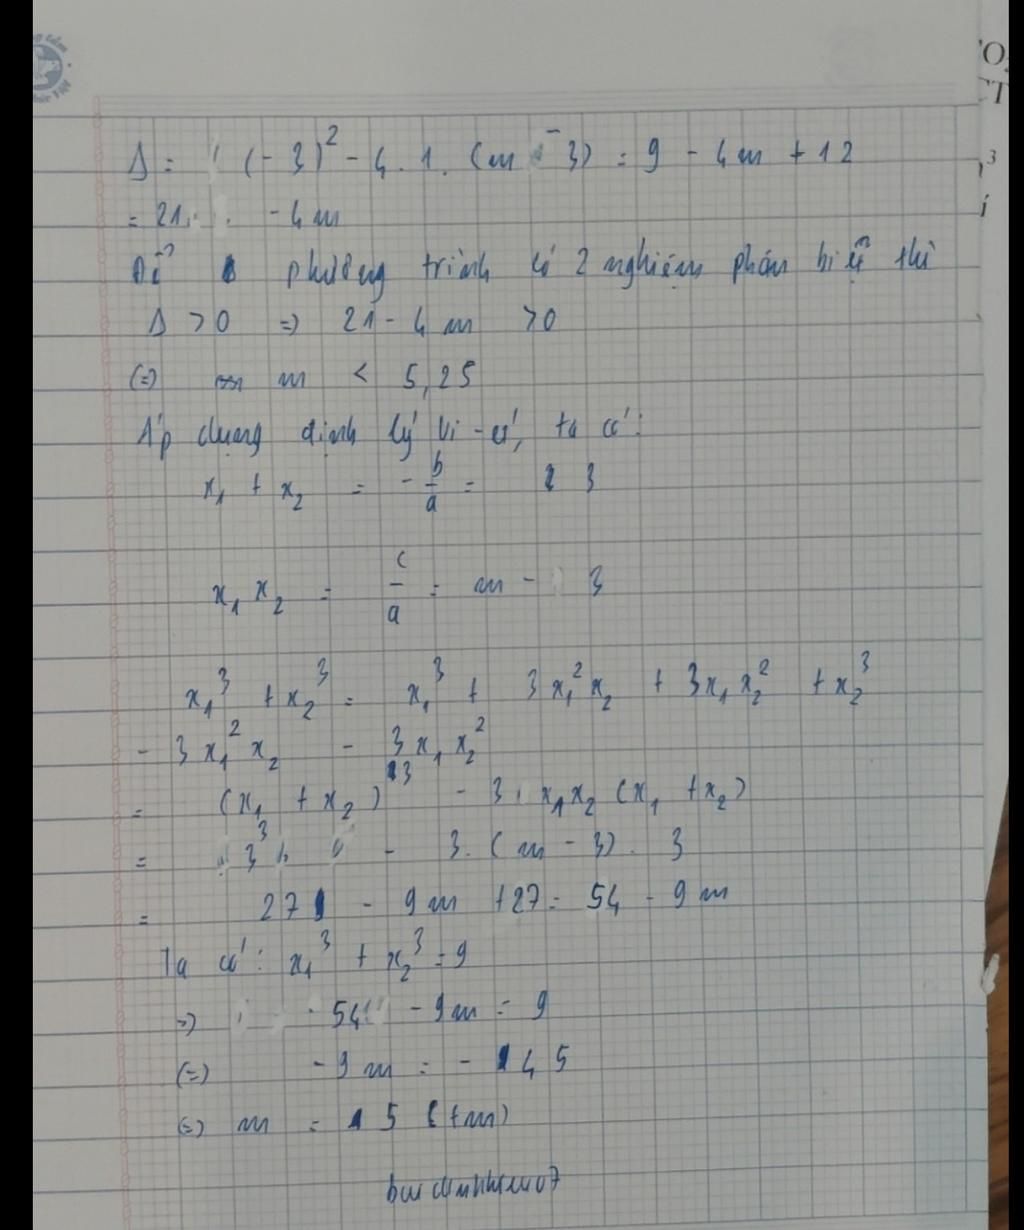 Δ = (-3)² - 4.1.(m - 3) = 9 - 4m + 12
= 21 - 4m
Để phương trình có 2 nghiệm phân biệt thì
Δ > 0 => 21 - 4m > 0
(=) m < 5,25
Áp dụng định lý Vi-ét, ta có:
x₁ + x₂ = -b/a = 3
x₁ x₂ = c/a = m - 3
x₁³ + x₂³ = x₁³ + 3x₁²x₂ + 3x₁x₂² + x₂³
- 3x₁²x₂ - 3x₁x₂²
= (x₁ + x₂)³ - 3.x₁x₂(x₁ + x₂)
= 3³ - 3.(m - 3).3
= 27 - 9m + 27 = 54 - 9m
Ta có: x₁³ + x₂³ = 9
=) 54 - 9m = 9
(=) -9m = -45
(=) m = 5 (tm)